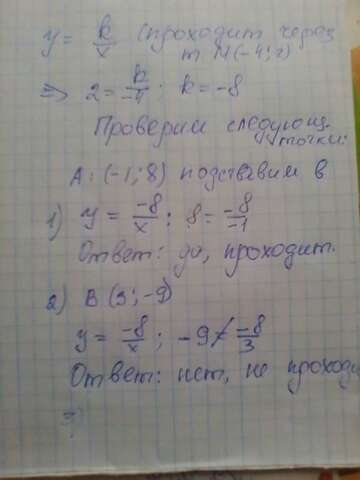 y = k/x (проходит через
т M(-4; 2)
=> 2 = k/-4; k = -8
Проверим следующ.
точки:
A: (-1; 8) подставим в
1) y = -8/x; 8 = -8/-1
Ответ: да, проходит.
2) B (3; -9)
y = -8/x; -9 ≠ -8/3
Ответ: нет, не проходи
3)